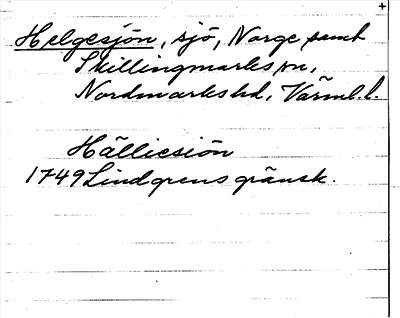 Helgesjön, sjö, Norge samt
Skillingmarks sn,
Nordmarks hd, Värml. l.
Hälliesiön
1749 Lindgrens gränsk.